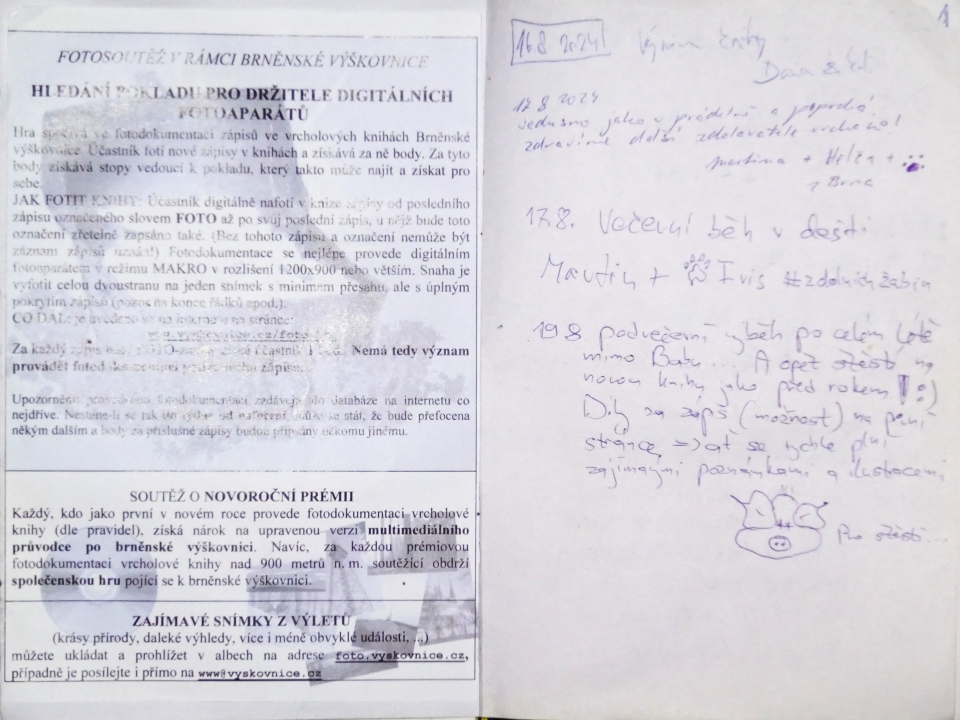 FOTOSOUTĚŽ V RÁMCI BRNĚNSKÉ VÝŠKOVNICE
HLEDÁNÍ POKLADU PRO DRŽITELE DIGITÁLNÍCH
FOTOAPARÁTŮ
Hra spočívá ve fotodokumentaci zápisů ve vrcholových knihách Brněnské
výškovnice. Účastník fotí nové zápisy v knihách a získává za ně body. Za tyto
body získává stopy vedoucí k pokladu, který takto může najít a získat pro
sebe.
JAK FOTIT KNIHY: Účastník digitálně nafotí v knize zápisy od posledního
zápisu označeného slovem FOTO až po svůj poslední zápis, u nějž bude toto
označení zřetelně zapsáno také. (Bez tohoto zápisu a označení nemůže být
záznam zápisů uznán!) Fotodokumentace se nejlépe provede digitálním
fotoaparátem v režimu MAKRO v rozlišení 1200x900 nebo větším. Snaha je
vyfotit celou dvoustranu na jeden snímek s minimem přesahu, ale s úplným
pokrytím zápisů (pozor na konce řádků apod.).
CO DÁL: je uvedeno na internetu na stránce:
www.vyskovnice.cz/foto
Za každý zápis získá účastník Nemá tedy význam
provádět
Upozornění: fotodokumentaci zadávejte do databáze na internetu co
nejdříve. Nestane-li se tak do od nafocení, může se stát, že bude přefocena
někým dalším a body za příslušné zápisy budou připsány někomu jinému.
SOUTĚŽ O NOVOROČNÍ PRÉMII
Každý, kdo jako první v novém roce provede fotodokumentaci vrcholové
knihy (dle pravidel), získá nárok na upravenou verzi multimediálního
průvodce po brněnské výškovnici. Navíc, za každou prémiovou
fotodokumentaci vrcholové knihy nad 900 metrů n. m. soutěžící obdrží
společenskou hru pojící se k brněnské výškovnici.
ZAJÍMAVÉ SNÍMKY Z VÝLETŮ
(krásy přírody, daleké výhledy, více i méně obvyklé události, ...)
můžete ukládat a prohlížet v albech na adrese foto.vyskovnice.cz,
případně je posílejte i přímo na www@vyskovnice.cz
1
16.8 2024! Výměna knihy
17.8 2024
vedusno jako v prádelně a poprchá
zdravíme další zdolavatele vrcholů!
martina + Helža +
z Brna
17.8. Večerní běh v dešti
Martin + Ivis #zdolnichzabin
19.8 podvečerní výběh po celém létě
mimo Babu... A opět štěstí na
novou knihu jako před rokem! :)
Díky za zápis (možnost) na první
stránce => ať se rychle plní
zajímavými poznámkami a ilustracemi
Pro štěstí...